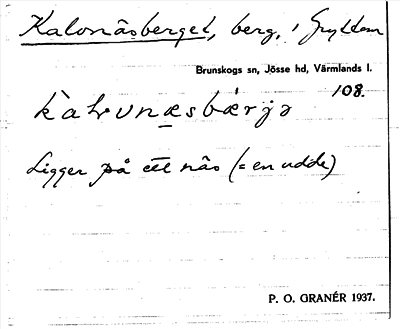 Kalvnäsberget, berg, i Grytten
Brunskogs sn, Jösse hd, Värmlands l.
108.
Ligger på ett näs (= en udde)
P. O. GRANÉR 1937.